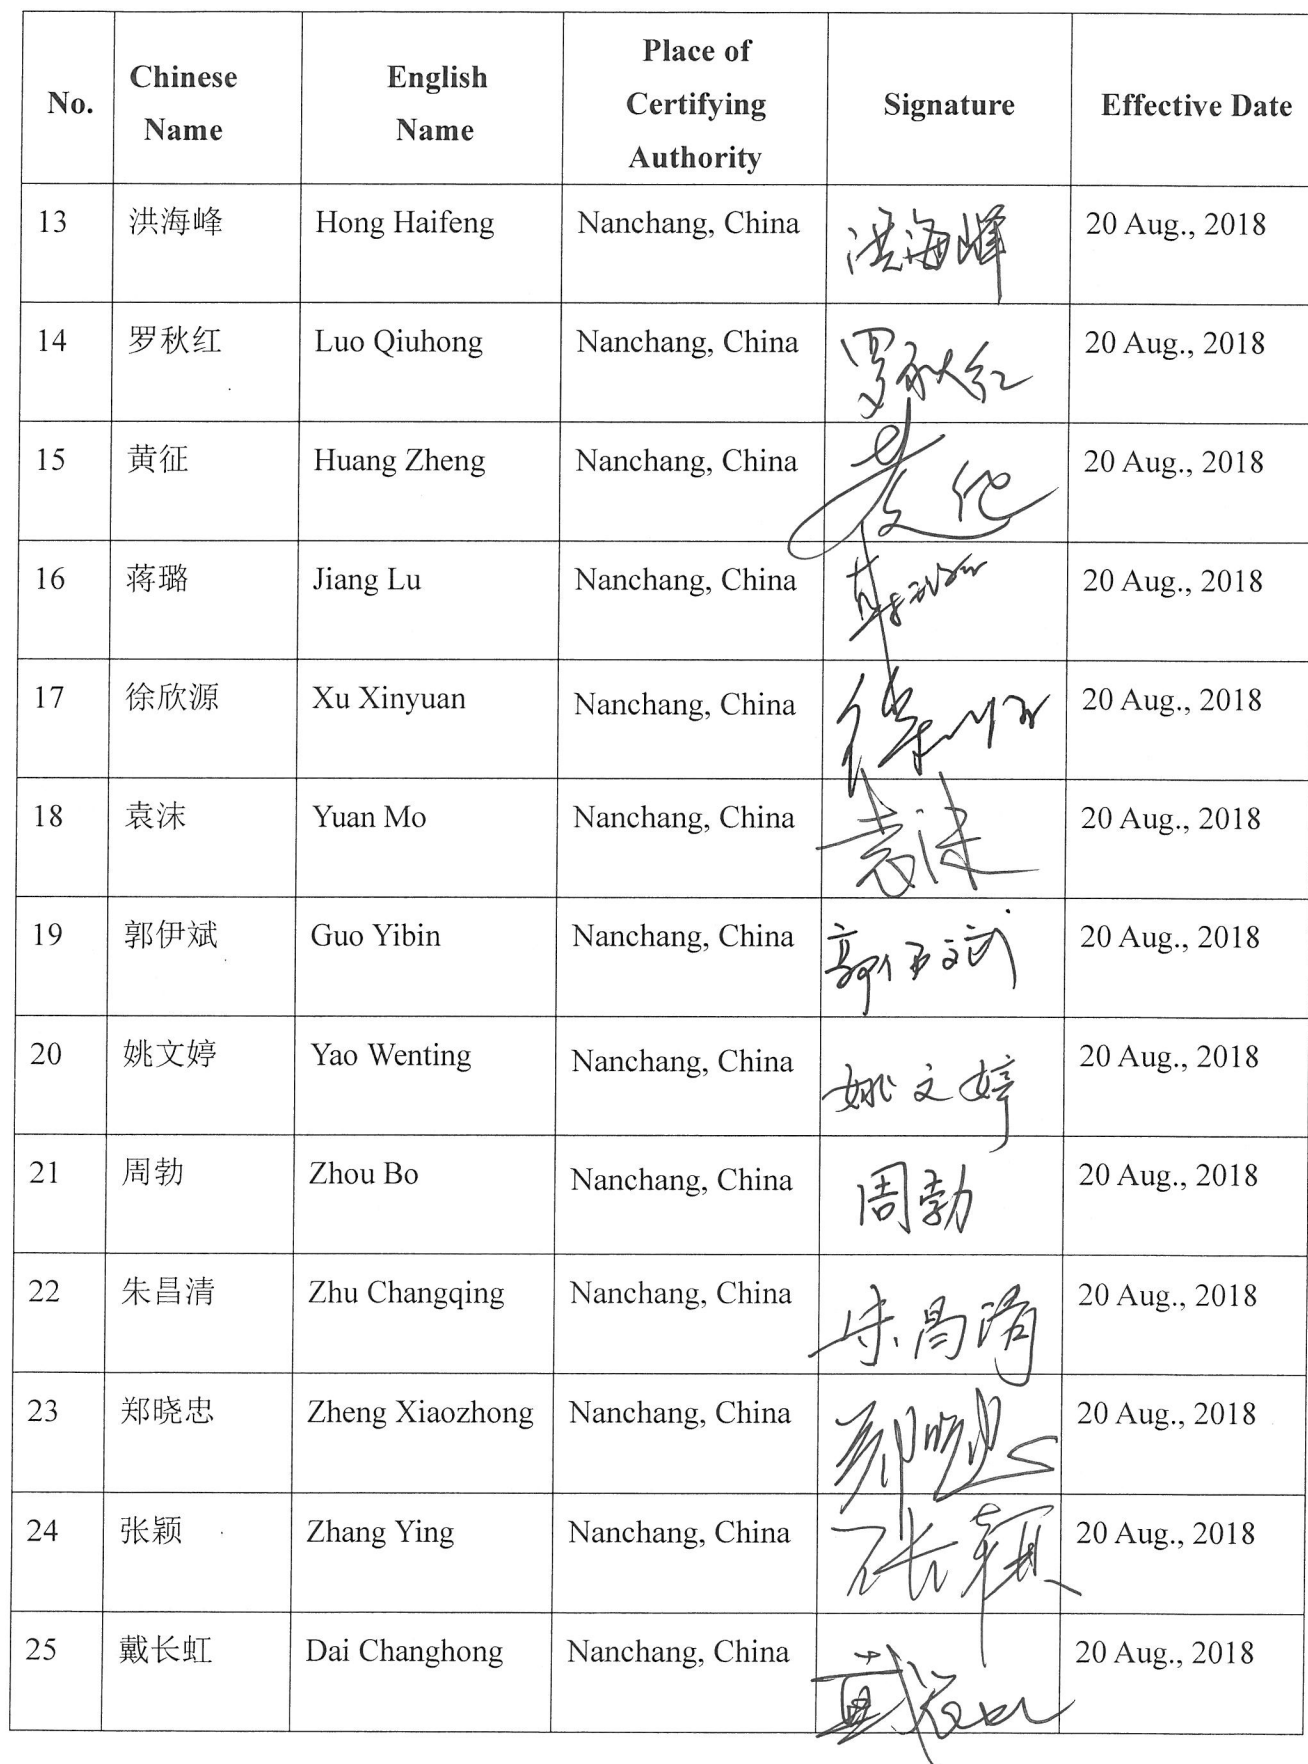 No. Chinese Name English Name Place of Certifying Authority Signature Effective Date
13 洪海峰 Hong Haifeng Nanchang, China 洪海峰 20 Aug., 2018
14 罗秋红 Luo Qiuhong Nanchang, China 罗秋红 20 Aug., 2018
15 黄征 Huang Zheng Nanchang, China 20 Aug., 2018
16 蒋璐 Jiang Lu Nanchang, China 20 Aug., 2018
17 徐欣源 Xu Xinyuan Nanchang, China 20 Aug., 2018
18 袁沫 Yuan Mo Nanchang, China 袁沫 20 Aug., 2018
19 郭伊斌 Guo Yibin Nanchang, China 郭伊斌 20 Aug., 2018
20 姚文婷 Yao Wenting Nanchang, China 姚文婷 20 Aug., 2018
21 周勃 Zhou Bo Nanchang, China 周勃 20 Aug., 2018
22 朱昌清 Zhu Changqing Nanchang, China 朱昌清 20 Aug., 2018
23 郑晓忠 Zheng Xiaozhong Nanchang, China 郑晓忠 20 Aug., 2018
24 张颖 Zhang Ying Nanchang, China 张颖 20 Aug., 2018
25 戴长虹 Dai Changhong Nanchang, China 20 Aug., 2018